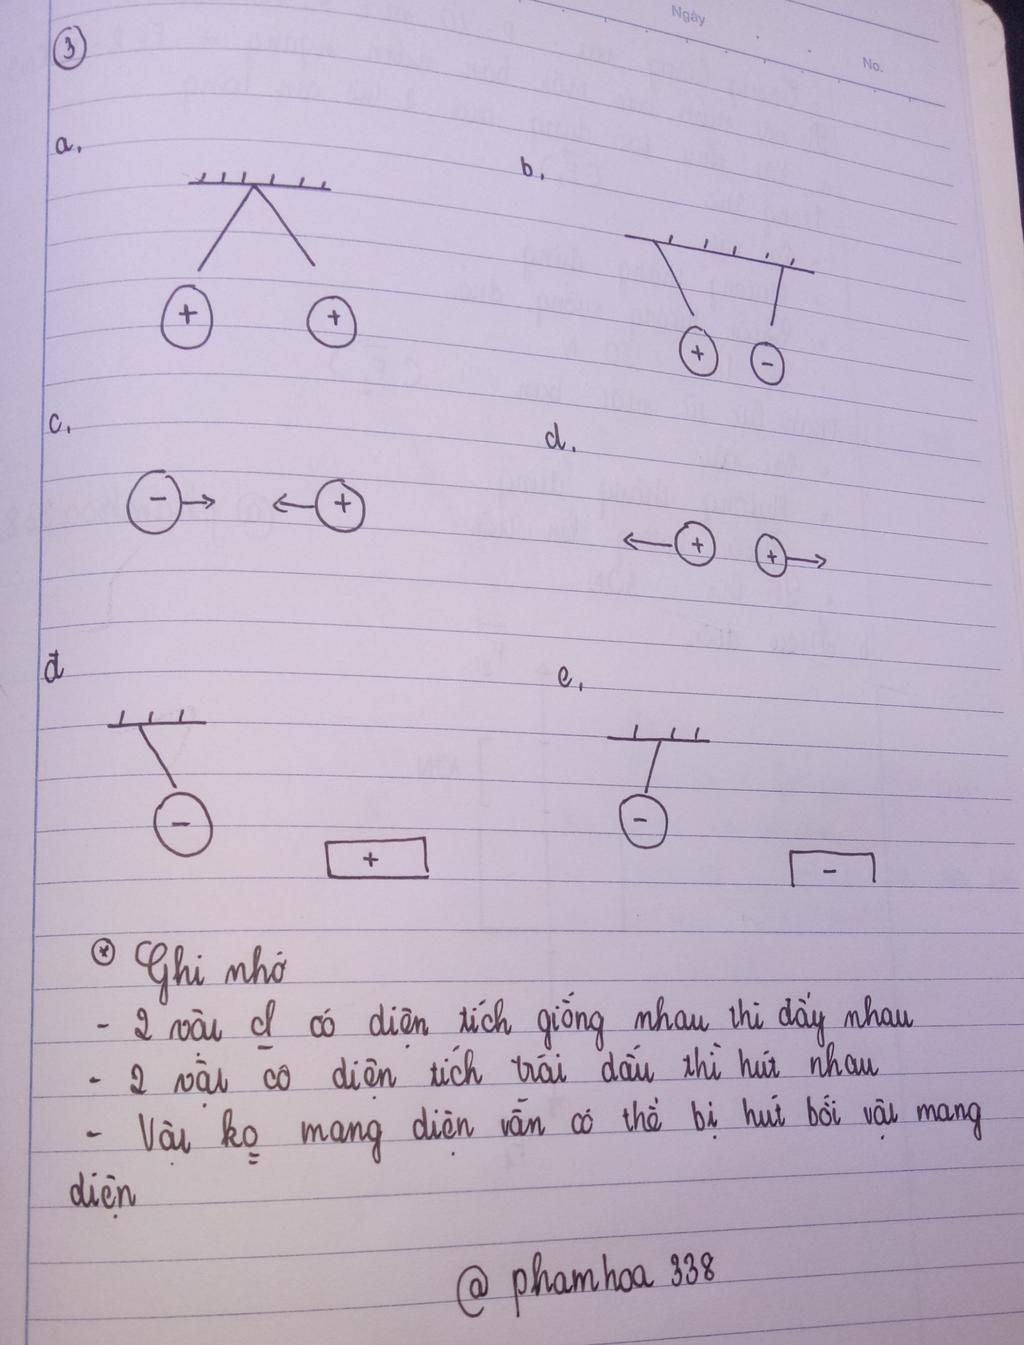 Ngày
No.
3
a.
b.
+ +
+ -
c.
d.
- +
+ +
đ
e.
-
-
+
-
* Ghi nhớ
- 2 vật có điện tích giống nhau thì đẩy nhau
- 2 vật có điện tích trái dấu thì hút nhau
- Vật ko mang điện vẫn có thể bị hút bởi vật mang
điện
@ phamhoa 338